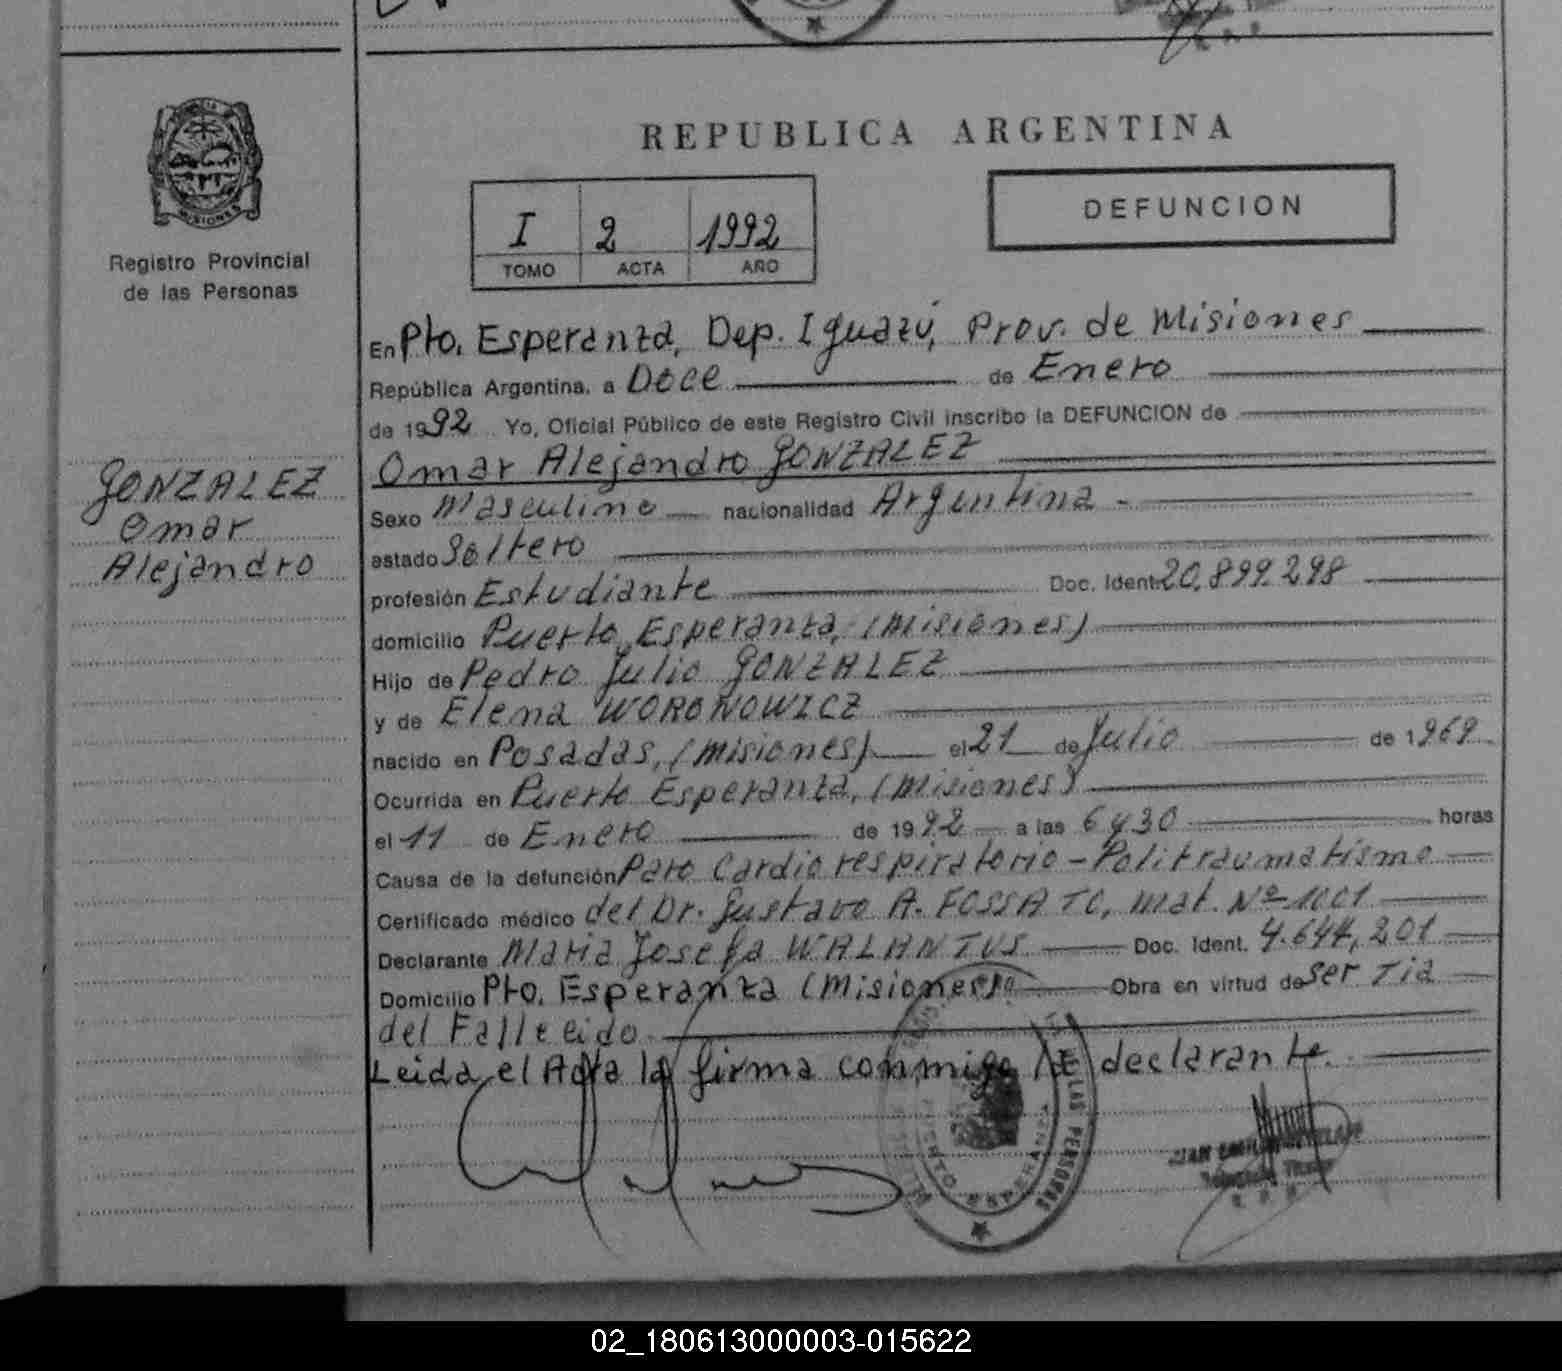 MISIONES
Registro Provincial
de las Personas
GONZALEZ
Omar
Alejandro
REPUBLICA ARGENTINA
I 2 1992
TOMO ACTA AÑO
DEFUNCION
En Pto. Esperanza, Dep. Iguazú, Prov. de Misiones
República Argentina, a Doce de Enero
de 1992 Yo, Oficial Público de este Registro Civil inscribo la DEFUNCION de
Omar Alejandro GONZALEZ
Sexo Masculino nacionalidad Argentina -
estado Soltero
profesión Estudiante Doc. Ident. 20.899.298
domicilio Puerto Esperanza, (Misiones)
Hijo de Pedro Julio GONZALEZ
y de Elena WORONOWICZ
nacido en Posadas, (Misiones) el 21 de Julio de 1969
Ocurrida en Puerto Esperanza, (Misiones)
el 11 de Enero de 1992 a las 6 y 30 horas
Causa de la defunción Paro Cardio respiratorio - Politraumatismo
Certificado médico del Dr. Gustavo A. FOSSATO, mat. Nº 1001
Declarante Maria Josefa WALANTUS Doc. Ident. 4.644,201
Domicilio Pto. Esperanza (Misiones) Obra en virtud de ser Tia
del Fallecido
Leida el Acta la firma conmigo la declarante.
DE LAS PERSONAS
ESPERANZA
JUAN
02_180613000003-015622